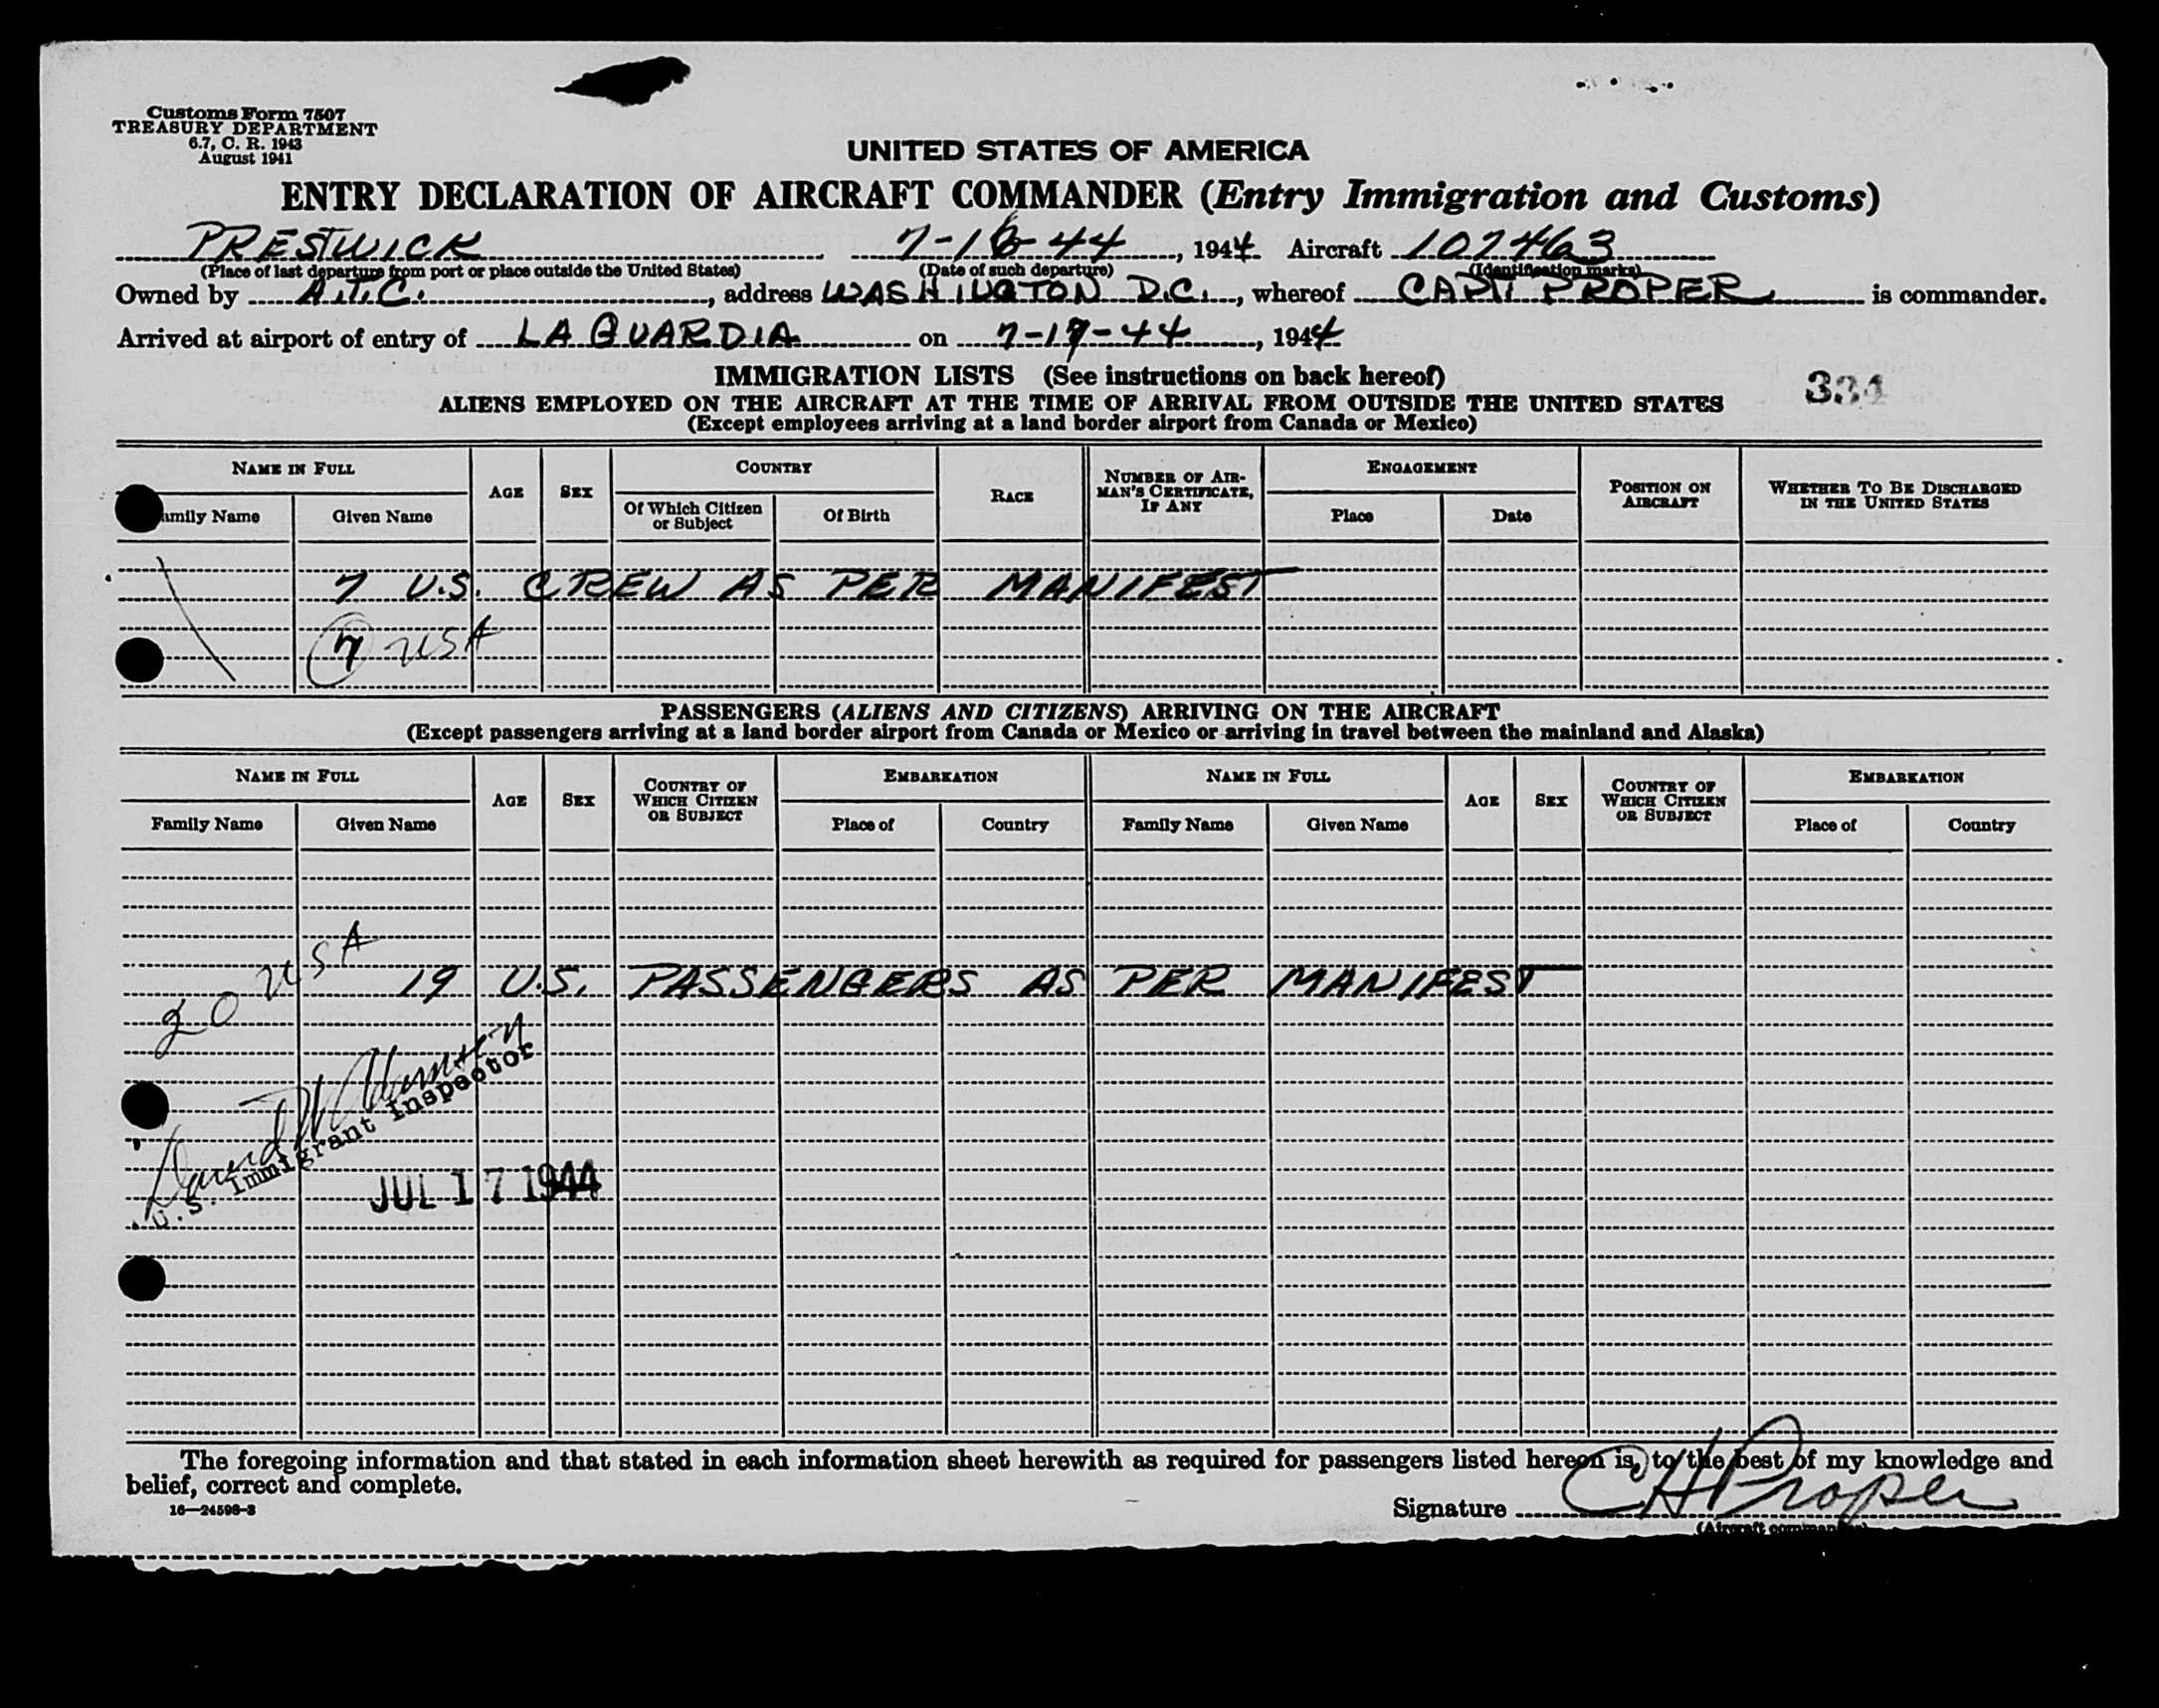 Customs Form 7507
TREASURY DEPARTMENT
6.7, C. R. 1943
August 1941
UNITED STATES OF AMERICA
ENTRY DECLARATION OF AIRCRAFT COMMANDER (Entry Immigration and Customs)
PRESTWICK 7-16-44, 1944 Aircraft 107463
(Place of last departure from port or place outside the United States) (Date of such departure) (Identification marks)
Owned by A.T.C., address WASHINGTON D.C., whereof CAPT PROPER is commander.
Arrived at airport of entry of LA GUARDIA on 7-17-44, 1944
IMMIGRATION LISTS (See instructions on back hereof)
334
ALIENS EMPLOYED ON THE AIRCRAFT AT THE TIME OF ARRIVAL FROM OUTSIDE THE UNITED STATES
(Except employees arriving at a land border airport from Canada or Mexico)
NAME IN FULL AGE SEX COUNTRY RACE NUMBER OF AIRMAN'S CERTIFICATE, IF ANY ENGAGEMENT POSITION ON AIRCRAFT WHETHER TO BE DISCHARGED IN THE UNITED STATES
Family Name Given Name Of Which Citizen or Subject Of Birth Place Date
7 U.S. CREW AS PER MANIFEST
7 USA
PASSENGERS (ALIENS AND CITIZENS) ARRIVING ON THE AIRCRAFT
(Except passengers arriving at a land border airport from Canada or Mexico or arriving in travel between the mainland and Alaska)
NAME IN FULL AGE SEX COUNTRY OF WHICH CITIZEN OR SUBJECT EMBARKATION NAME IN FULL AGE SEX COUNTRY OF WHICH CITIZEN OR SUBJECT EMBARKATION
Family Name Given Name Place of Country Family Name Given Name Place of Country
20 USA
19 U.S. PASSENGERS AS PER MANIFEST
David
U.S. Immigrant Inspector
JUL 17 1944
The foregoing information and that stated in each information sheet herewith as required for passengers listed hereon is, to the best of my knowledge and
belief, correct and complete.
16—24598-3
Signature CH Proper
(Aircraft commander)